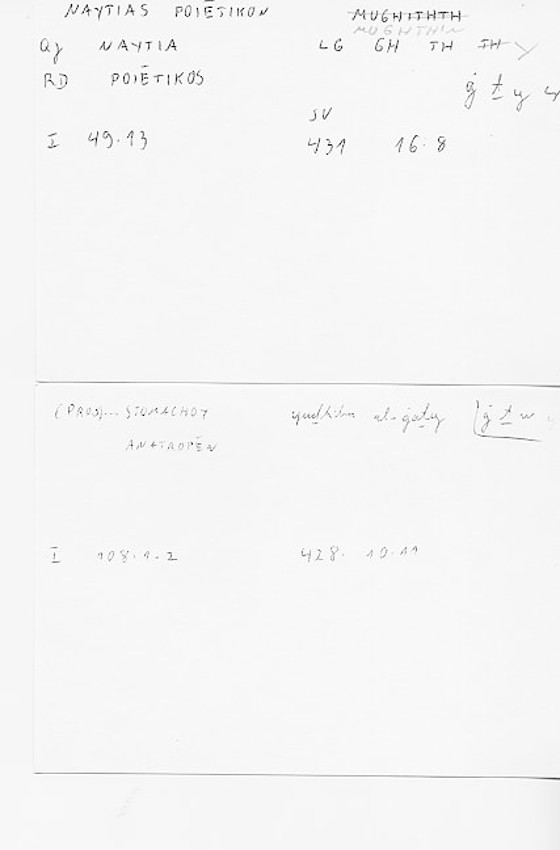 NAYTIAS POIĒTIKON MUGHITHTH
MUGHTHIN
Qy NAYTIA LG GH TH TH Y
RD POIĒTIKOS
ġ ṯ y
SV
I 49.13 431 16.8
(PROS)... STOMACHOY al- ġ ṯ w
ANATROPĒN
I 108.1-2 428. 10.11